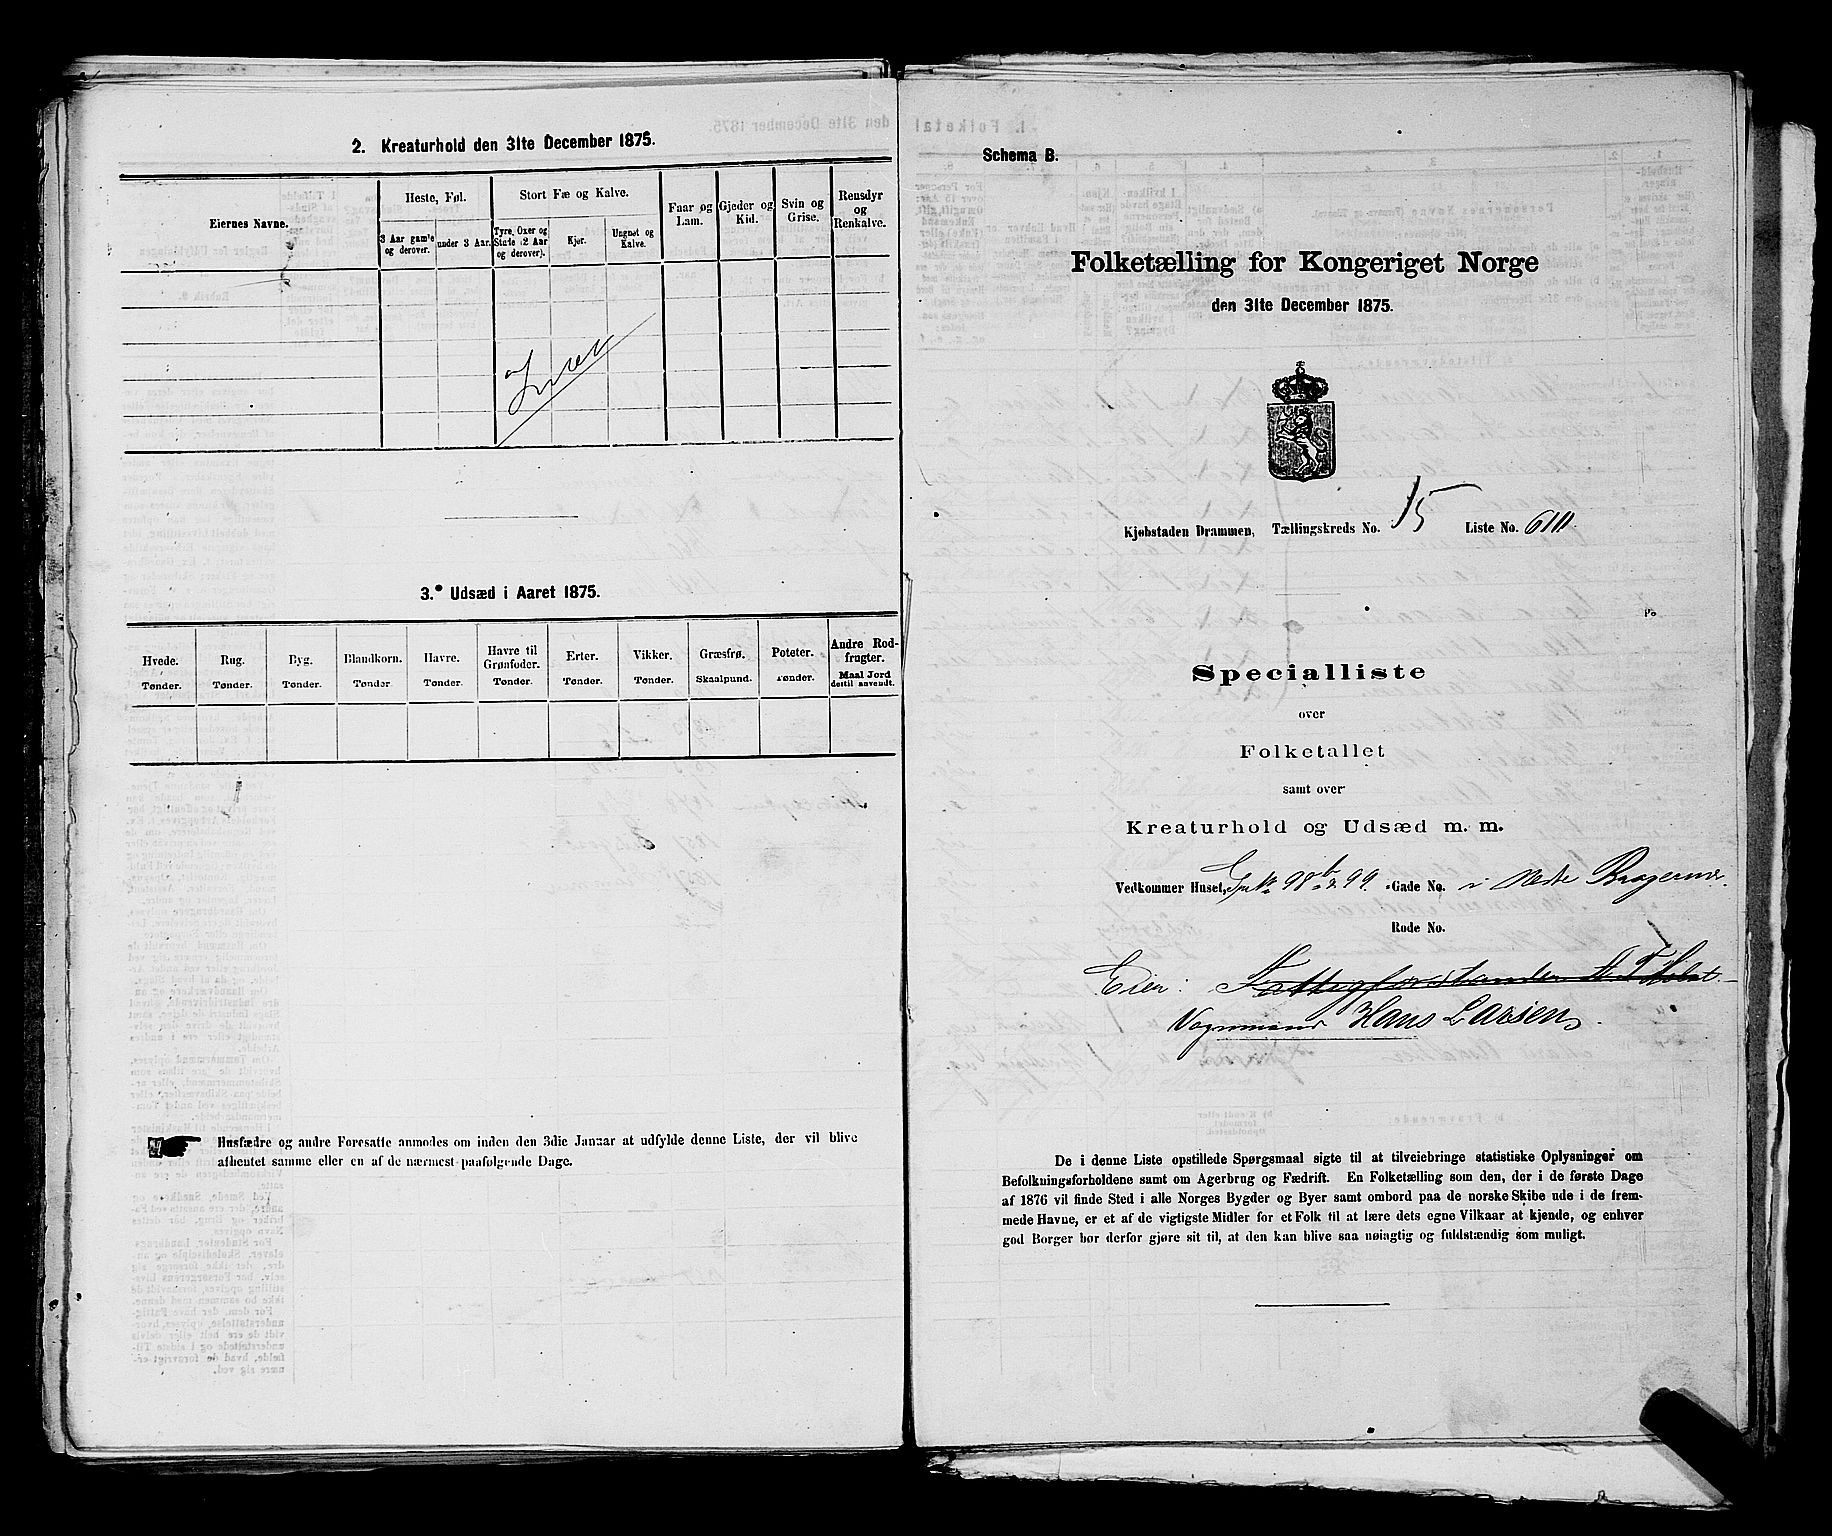 2. Kreaturhold den 31te December 1875.
Eiernes Navne.
Heste, Føl.
Stort Fæ og Kalve.
Faar og Lam.
Gjeder og Kid.
Svin og Grise.
Rensdyr og Renkalve.
3 Aar gamle og derover.
under 3 Aar.
Tyre, Oxer og Stude (2 Aar og derover).
Kjør.
Ungnøt og Kalve.
3. Udsæd i Aaret 1875.
Hvede. Rug. Byg. Blandkorn. Havre. Havre til Grønfoder. Erter. Vikker. Græsfrø. Poteter. Andre Rodfrugter.
Tønder. Tønder. Tønder. Tønder. Tønder. Tønder. Tønder. Tønder. Skaalpund. Tønder. Maal Jord dertil anvendt.
Husfædre og andre Foresatte anmodes om inden den 3die Januar at udfylde denne Liste, der vil blive
afhentet samme eller en af de nærmest paafølgende Dage.
Schema B.
Folketælling for Kongeriget Norge
den 31te December 1875.
Kjøbstaden Drammen, Tællingskreds No. 15 Liste No.
Specialliste
over
Folketallet
samt over
Kreaturhold og Udsæd m. m.
Vedkommer Huset, 98b 99. Gade No. i Nedre Bragernes
Rode No.
Eier: Fattigforstander
Vognmand Hans Larsen.
De i denne Liste opstillede Spørgsmaal sigte til at tilveiebringe statistiske Oplysninger om
Befolkningsforholdene samt om Agerbrug og Fædrift. En Folketælling som den, der i de første Dage
af 1876 vil finde Sted i alle Norges Bygder og Byer samt ombord paa de norske Skibe ude i de frem-
mede Havne, er et af de vigtigste Midler for et Folk til at lære dets egne Vilkaar at kjende, og enhver
god Borger bør derfor gjøre sit til, at den kan blive saa nøiagtig og fuldstændig som muligt.